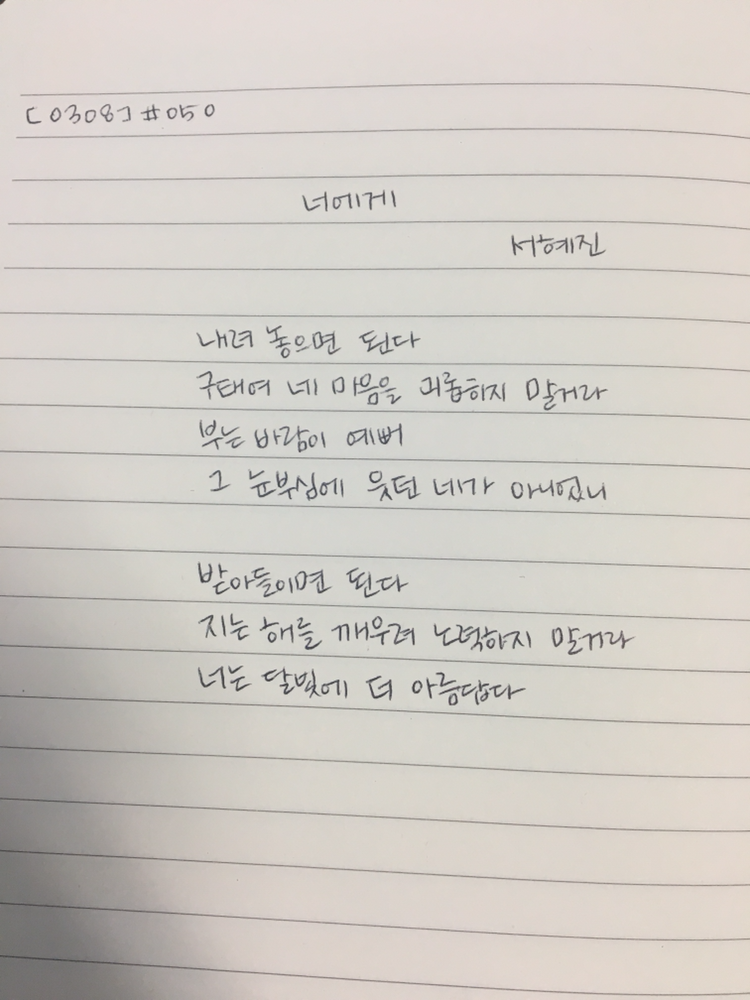 [0308] #050
너에게
서혜진
내려 놓으면 된다
구태여 네 마음을 괴롭히지 말거라
부는 바람이 예뻐
그 눈부심에 웃던 네가 아니었니
받아들이면 된다
지는 해를 깨우려 노력하지 말거라
너는 달빛에 더 아름답다